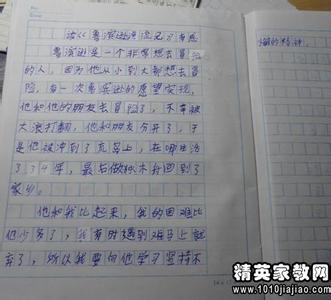 读《鲁滨逊漂流记》有感
鲁滨逊是一个非常想去冒险
的人，因为他从小到大都想去冒
险，有一次鲁宾逊的愿望实现，
他和他的朋友去冒险了，不幸被
大浪打翻，他和朋友分开了，于
是他被冲到了荒岛上，在哪生活
了34年，最后做独木舟回到了
家乡。
他和我比起来，我的困难比
他少多了，我有时遇到难马上就
弃了，所以我要向他学习坚持不
懈的精神。
精英家教网
www.1010jiajiao.com